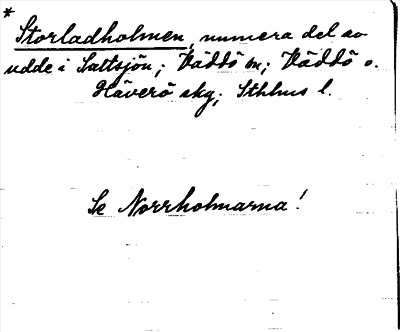 *
Storladholmen, numera del av
udde i Saltsjön; Väddö sn; Väddö o.
Häverö skg; Sthlms l.
Se Norrholmarna!